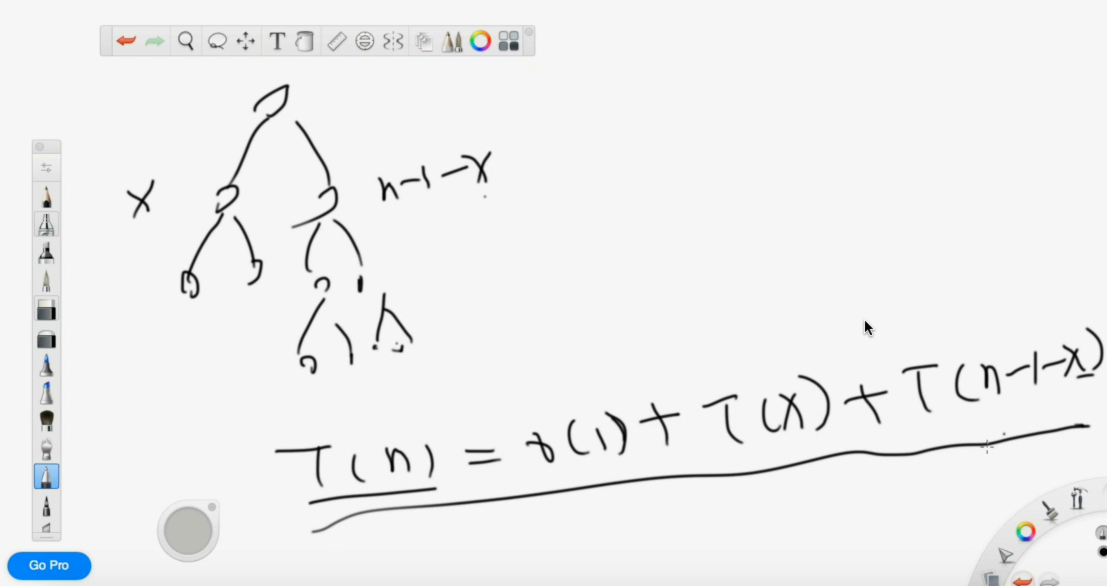 T
X
n-1-x
T(n) = θ(1) + T(x) + T(n-1-x)
Go Pro